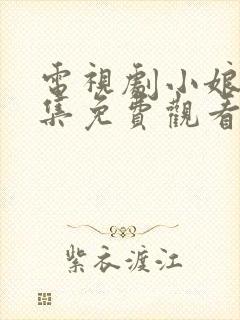 電視劇小娘
集免費觀看
紫衣渡江